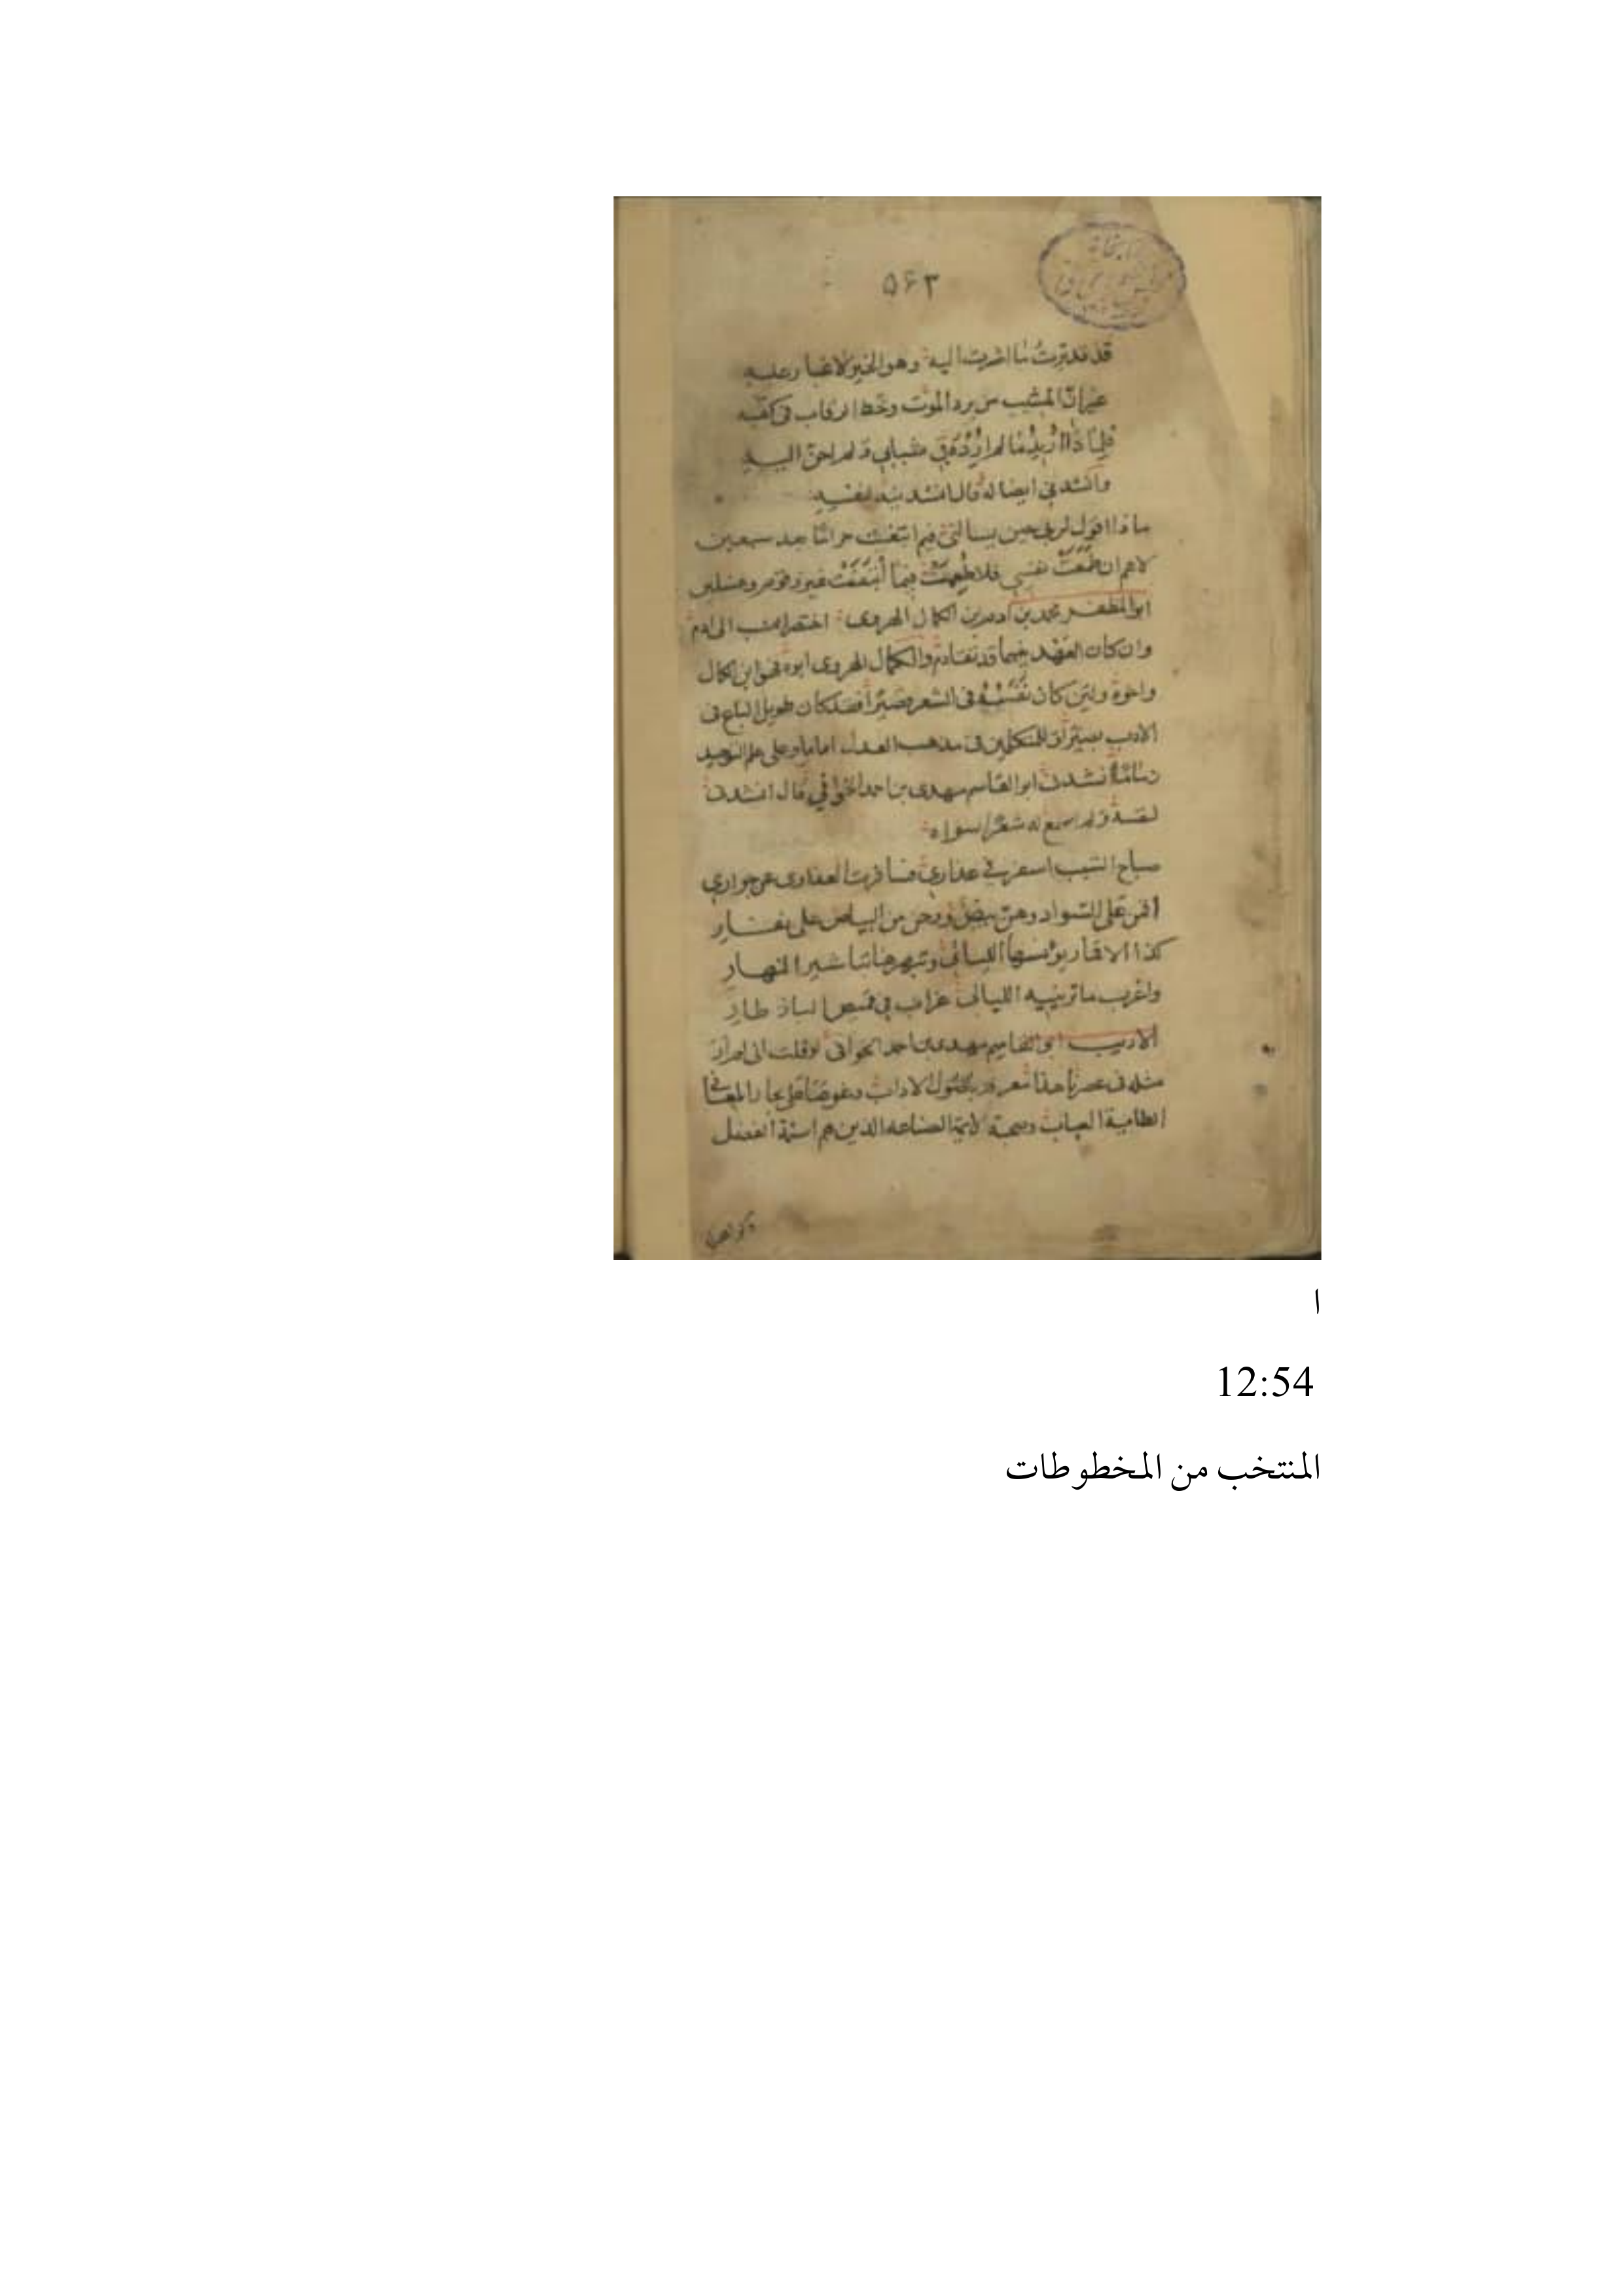 ۵۶۳
قد تدبرت ما اشرت اليه وهو الخير لا غبار عليه
غير ان المشيب من برد الموت وخط الرقاب في كفيه
فلماذا اريد ما لم ارده في شبابي ولم احن اليه
وانشدني ايضا له قال انشدنيه لنفسه
ماذا اقول لربي حين يسالني فيم ابتغيت حراثا بعد سبعين
لاهم ان طمعت نفسي فلا طعمت فيما ابتغت غير زقوم وغسلين
ابو المظفر محمد بن ادم بن الكمال الهروي اختصر النسب الى ادم
وان كان العهد فيما قد تقادم والكمال الهروي ابوه فهو ابن الكمال
واخوه ولئن كان نفسه في الشعر قصيرا فقد كان طويل الباع في
الادب بصيرا للمتكلمين في مذهب العدل اماما وعلى علم التوحيد
زماما انشدني ابو القاسم مهدي بن احمد الخوافي قال انشدني
لنفسه ولم اسمع له شعرا سواه
صباح الشيب اسفر في عذاري فنافرت العذاري عن جواري
اقمن على السواد وهن بيض ورحن من البياض على نفار
كذا الاقمار يونسها الليالي وتبهرها تباشير النهار
واغرب ما تربيه الليالي غراب في قميص الباز طار
الاديب ابو القاسم مهدي بن احمد الخوافي لو قلت اني لم ار
مثله في عصرنا هذا شعر الادب وغوصا على المعاني
الطامية العباب وصحبة لائمة الصناعه الذين هم اسنمة الفضل
ا
12:54
المنتخب من المخطوطات